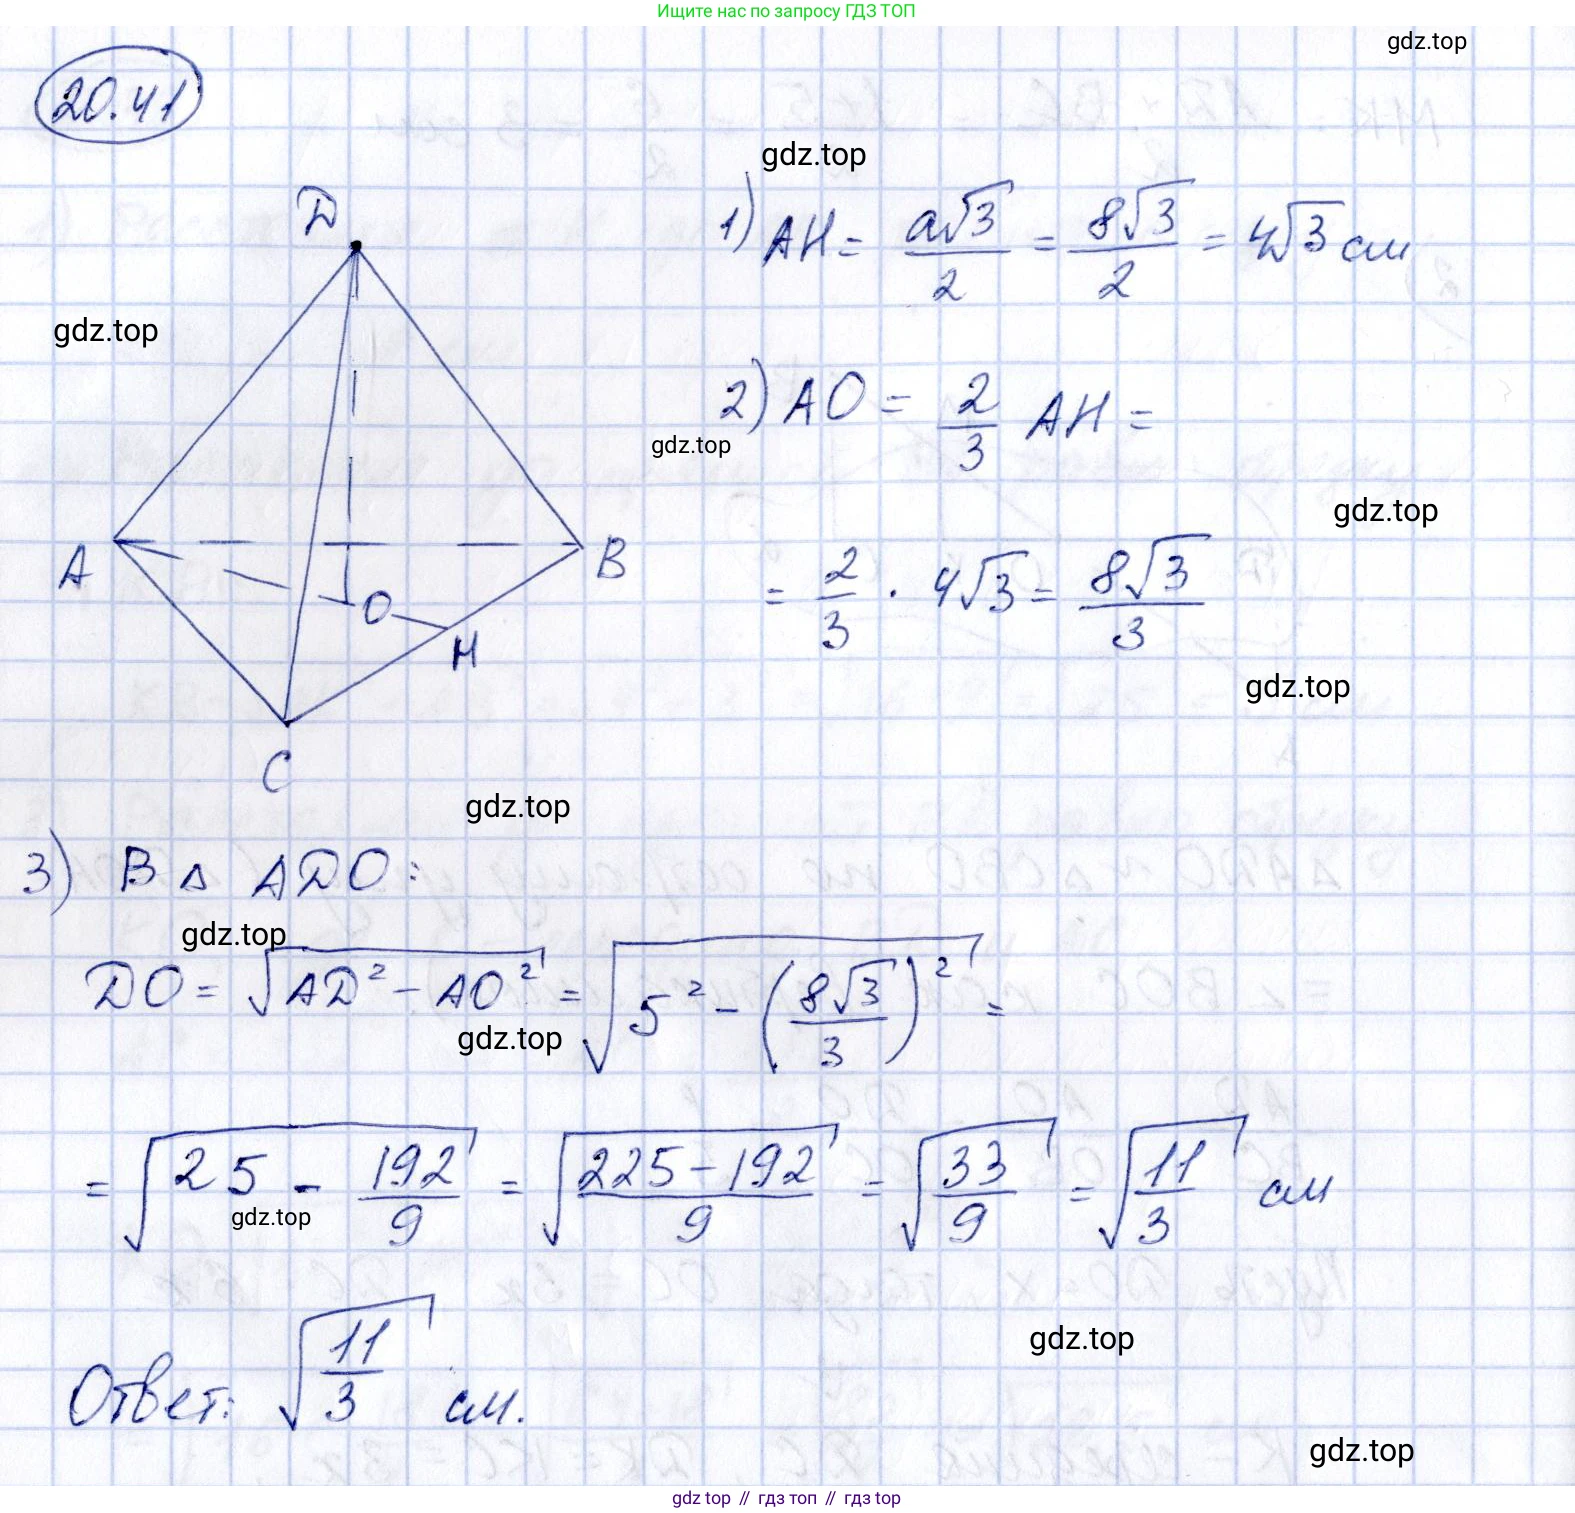 Ищите нас по запросу ГДЗ ТОП
gdz.top
20.41
gdz.top
D
1) AH = a√3/2 = 8√3/2 = 4√3 см
gdz.top
2) AO = 2/3 AH =
gdz.top
gdz.top
A
B
= 2/3 · 4√3 = 8√3/3
O
H
gdz.top
C
gdz.top
3) В Δ ADO:
gdz.top
DO = √(AD² - AO²) = √(5² - (8√3/3)²) =
gdz.top
= √(25 - 192/9) = √((225-192)/9) = √(33/9) = √(11/3) см
gdz.top
gdz.top
Ответ: √(11/3) см.
gdz.top
gdz top // гдз топ // гдз top